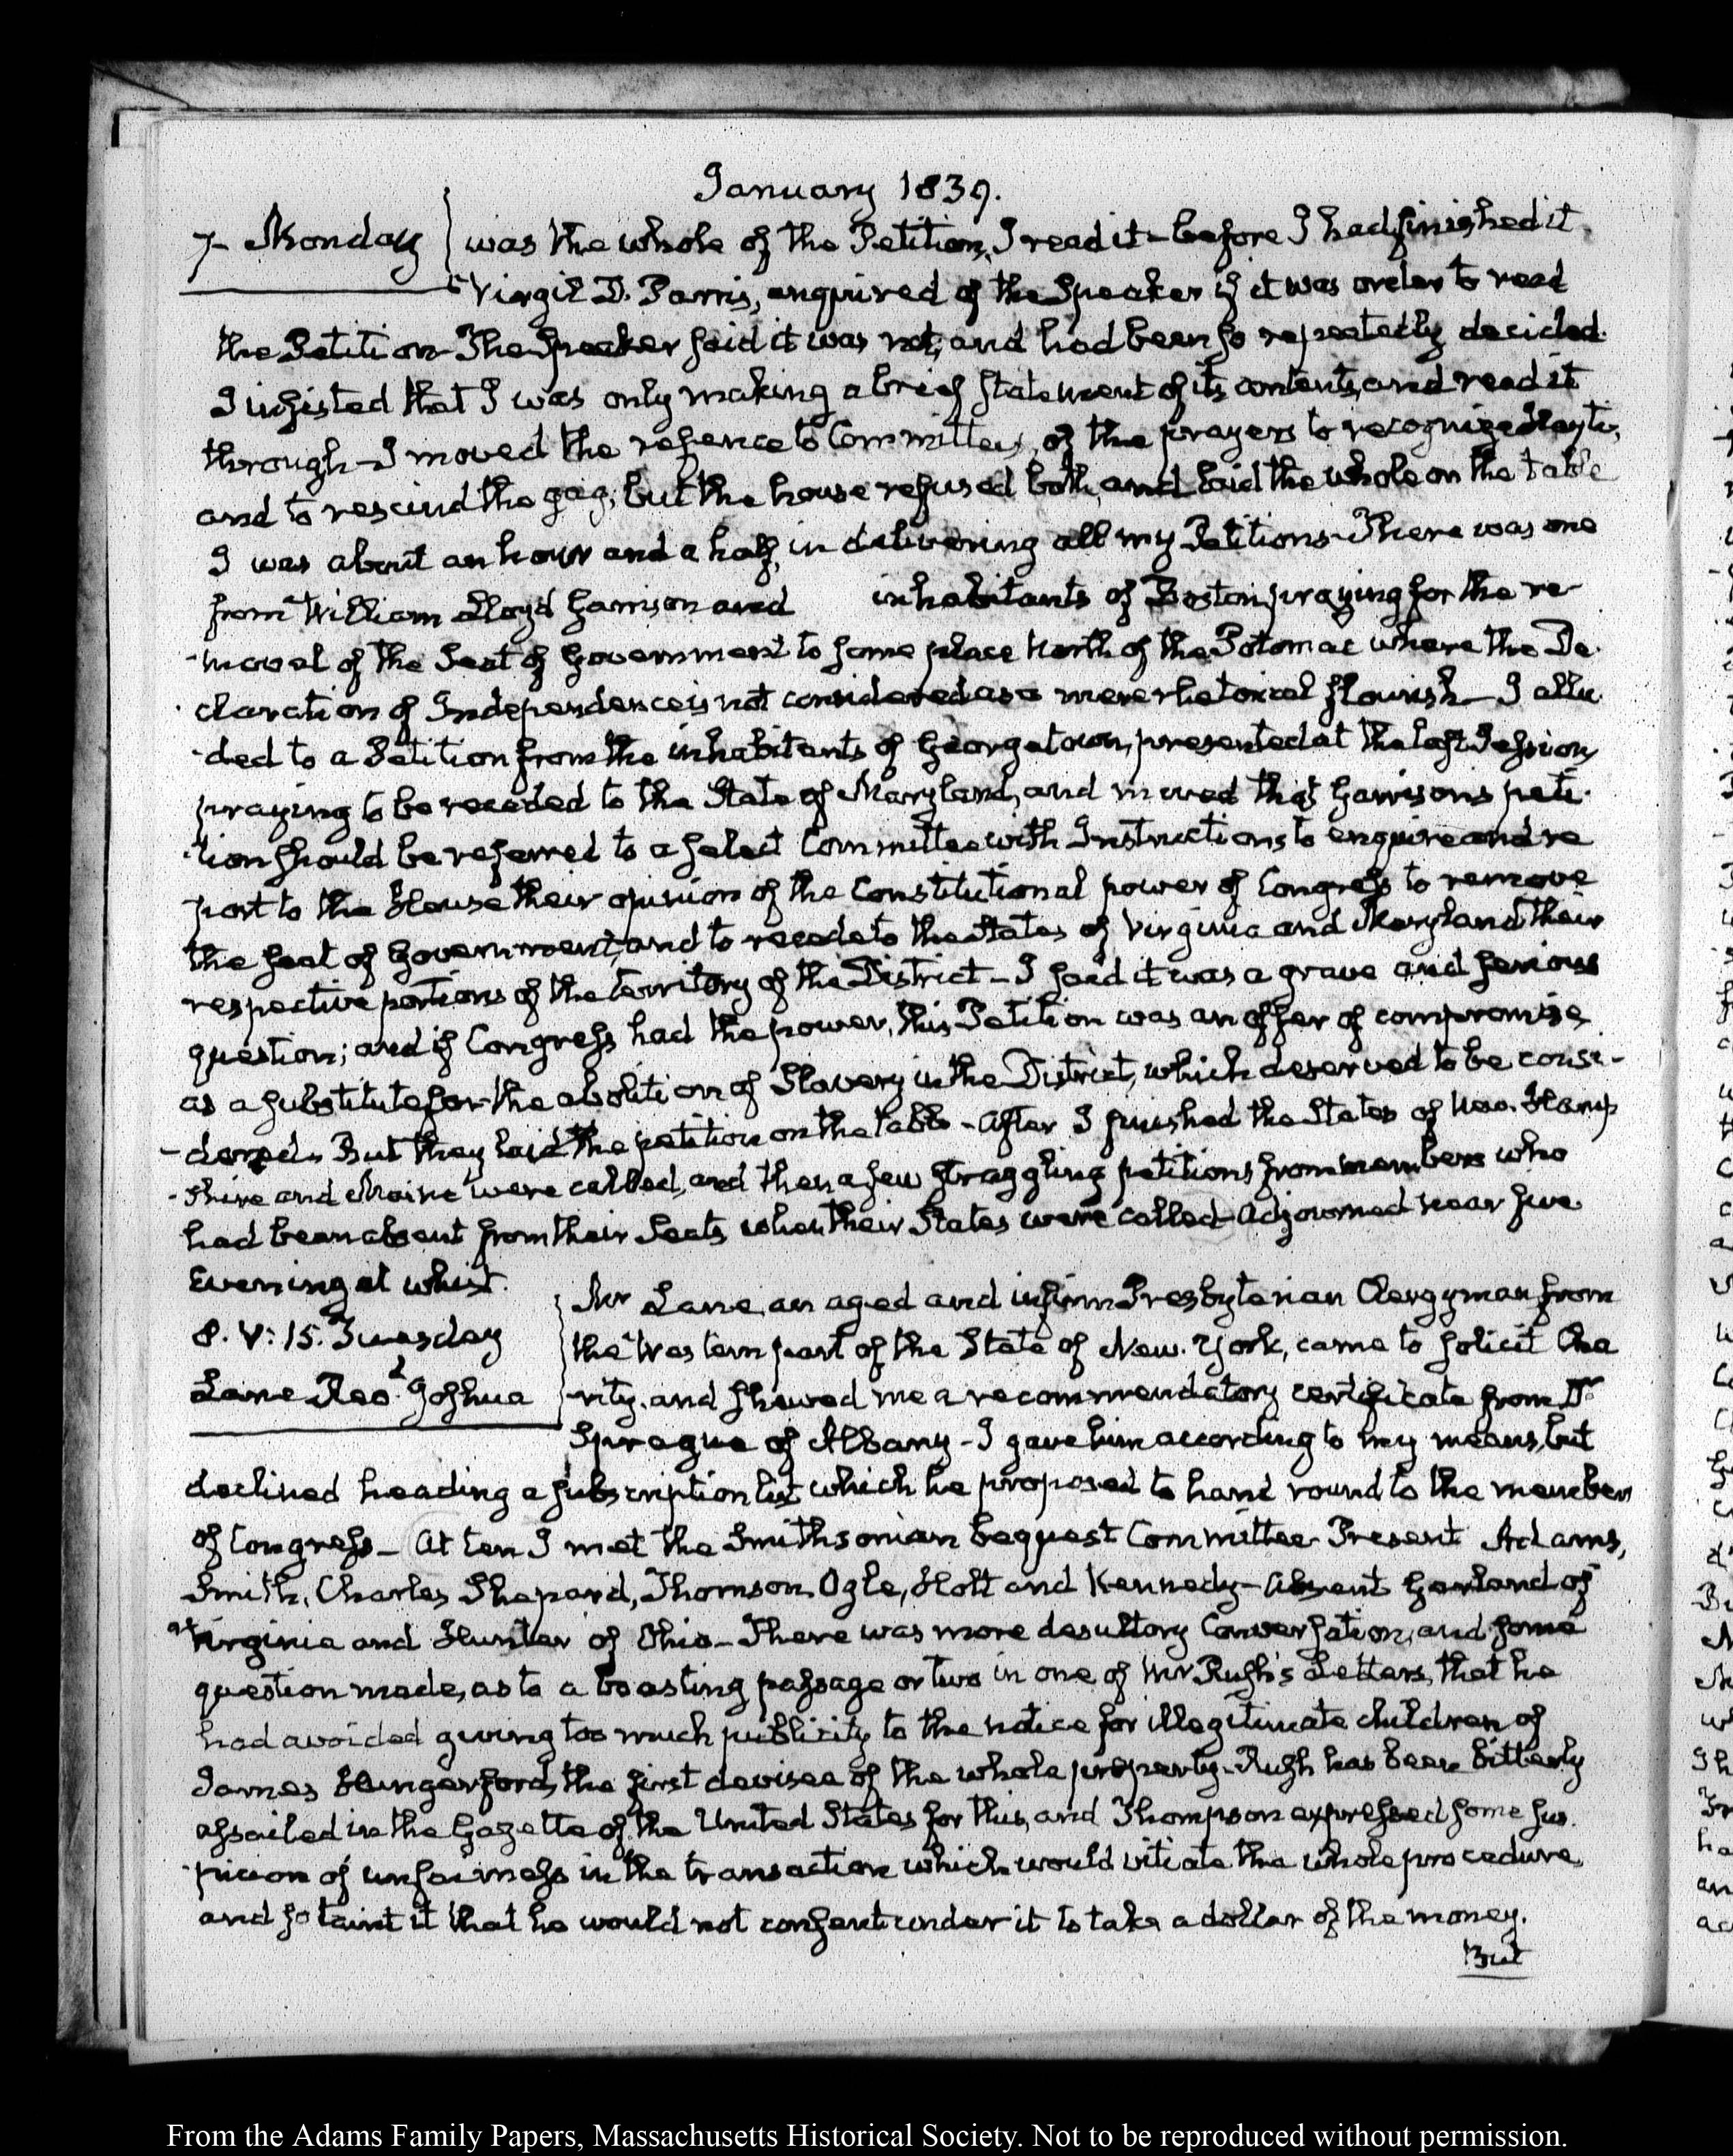 January 1839.
7- Monday
was the whole of the Petition, I read it - before I had finished it
Virgil D. Parris, enquired of the Speaker if it was order to read
the Petition - The Speaker said it was not, and had been so repeatedly decided.
I insisted that I was only making a brief statement of its contents, and read it
through - I moved the refence to Committees, of the prayers to recognize Hayti,
and to rescind the gag, but the house refused both, and laid the whole on the table
I was about an hour and a half, in delivering all my Petitions - There was one
from William Lloyd Garrison and inhabitants of Boston praying for the re-
-moval of the Seat of Government to some place North of the Potomac where the De-
claration of Independence is not considered as a mere rhetorical flourish - I allu-
-ded to a Petition from the inhabitants of Georgetown, presented at the last Session,
praying to be receded to the State of Maryland, and moved that Garrison's peti-
-tion should be referred to a select Committee with Instructions to enquire and re
port to the House their opinion of the Constitutional power of Congress to remove
the seat of Government, and to recede to the States of Virginia and Maryland their
respective portions of the territory of the District - I said it was a grave and serious
question; and if Congress had the power, this Petition was an offer of compromise
as a substitute for the abolition of Slavery in the District, which deserved to be consi-
-dered. But they laid the petition on the table - After I finished the States of New. Hamp
-shire and Maine were called, and then a few straggling petitions from members who
had been absent from their Seats when their States were called - Adjourned near five
Evening at whist.
8. V: 15. Tuesday
Lane Revd. Joshua
Mr Lane, an aged and infirm Presbyterian Clergyman from
the Western part of the State of New. York, came to solicit Cha
-rity, and shewed me a recommendatory certificate from Dr
Sprague of Albany - I gave him according to my means, but
declined heading a subscription list which he proposed to hand round to the members
of Congress - At ten I met the Smithsonian bequest Committee - Present Adams,
Smith, Charles Shepard, Thomson, Ogle, Holt and Kennedy - Absent Garland of
Virginia and Hunter of Ohio - There was more desultory Conversation, and some
question made, as to a boasting passage or two in one of Mr Rush's Letters, that he
had avoided giving too much publicity to the notice for illegitimate children of
James Hungerford, the first devisee of the whole property - Rush has been bitterly
assailed in the Gazette of the United States for this, and Thompson expressed some sus-
-picion of unfairness in the transaction which would vitiate the whole procedure,
and so taint it that he would not consent under it to take a dollar of the money.
But
From the Adams Family Papers, Massachusetts Historical Society. Not to be reproduced without permission.